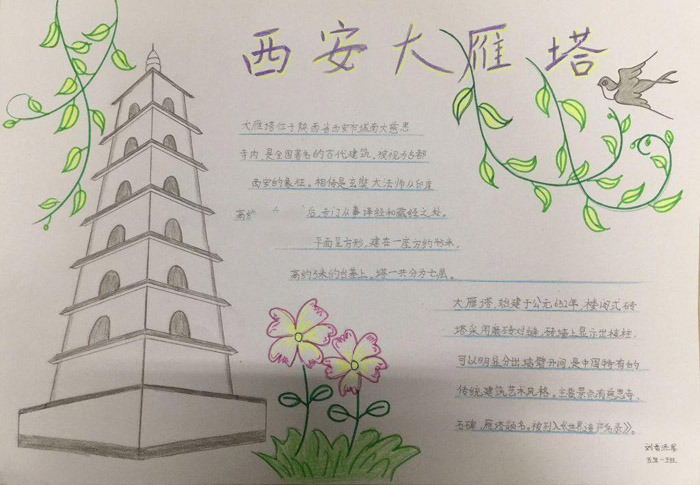 西安大雁塔
大雁塔位于陕西省西安市城南大慈恩
寺内,是全国著名的古代建筑,被视为古都
西安的象征。相传是玄奘大法师从印度
后,专门从事译经和藏经之处。
平面呈方形,建在一座方约
高约5米的台基上。塔一共分为七层。
大雁塔,始建于公元652年,楼阁式砖
塔采用磨砖对缝,砖墙上显示出棱柱,
可以明显分出墙壁开间,是中国特有的
传统建筑艺术风格。主要景点有慈恩寺,
石碑,雁塔题名。被列入《世界遗产名录》。